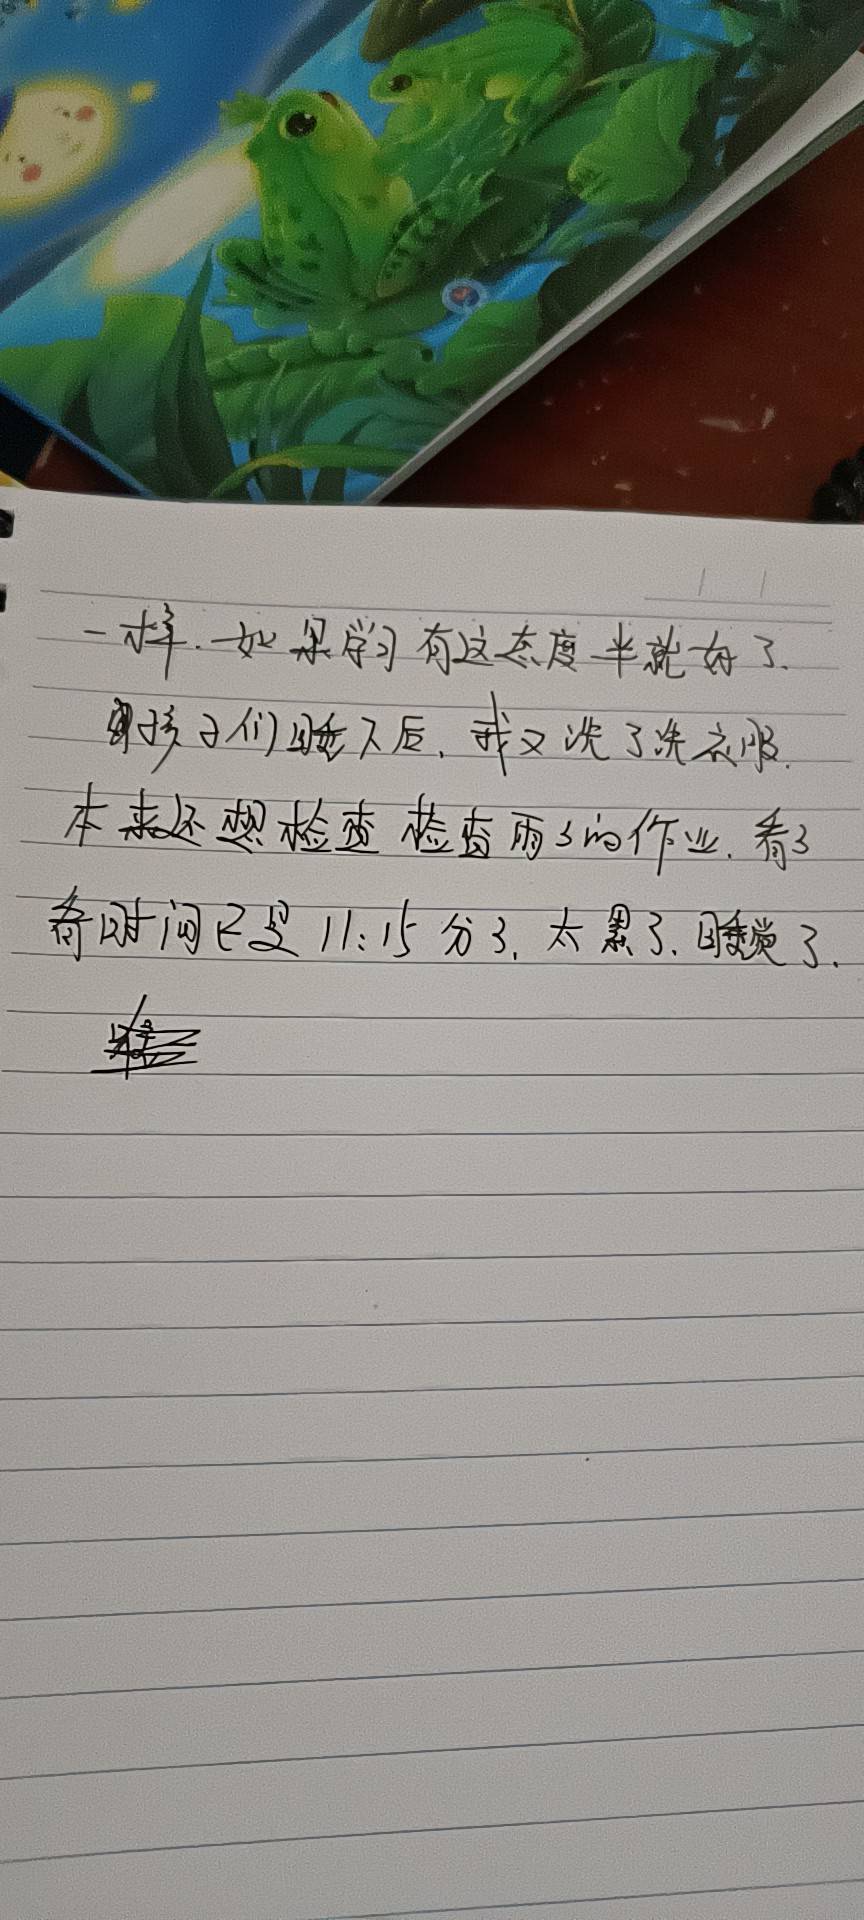 一样.如果学习有这态度半就好了.
孩子们睡下后,我又洗了洗衣服.
本来还想检查检查雨的作业.看了
看时间已是11:15分了,太累了.睡觉了.